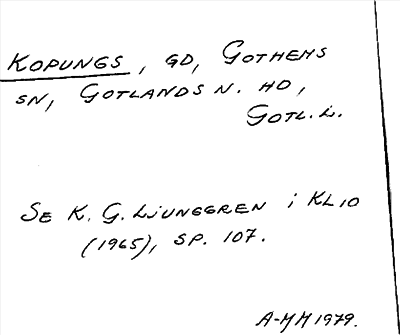 KOPUNGS, GD, GOTHEMS
SN, GOTLANDS N. HD,
GOTL. L.
SE K. G. LJUNGGREN i KL 10
(1965), SP. 107.
A-MM 1979.